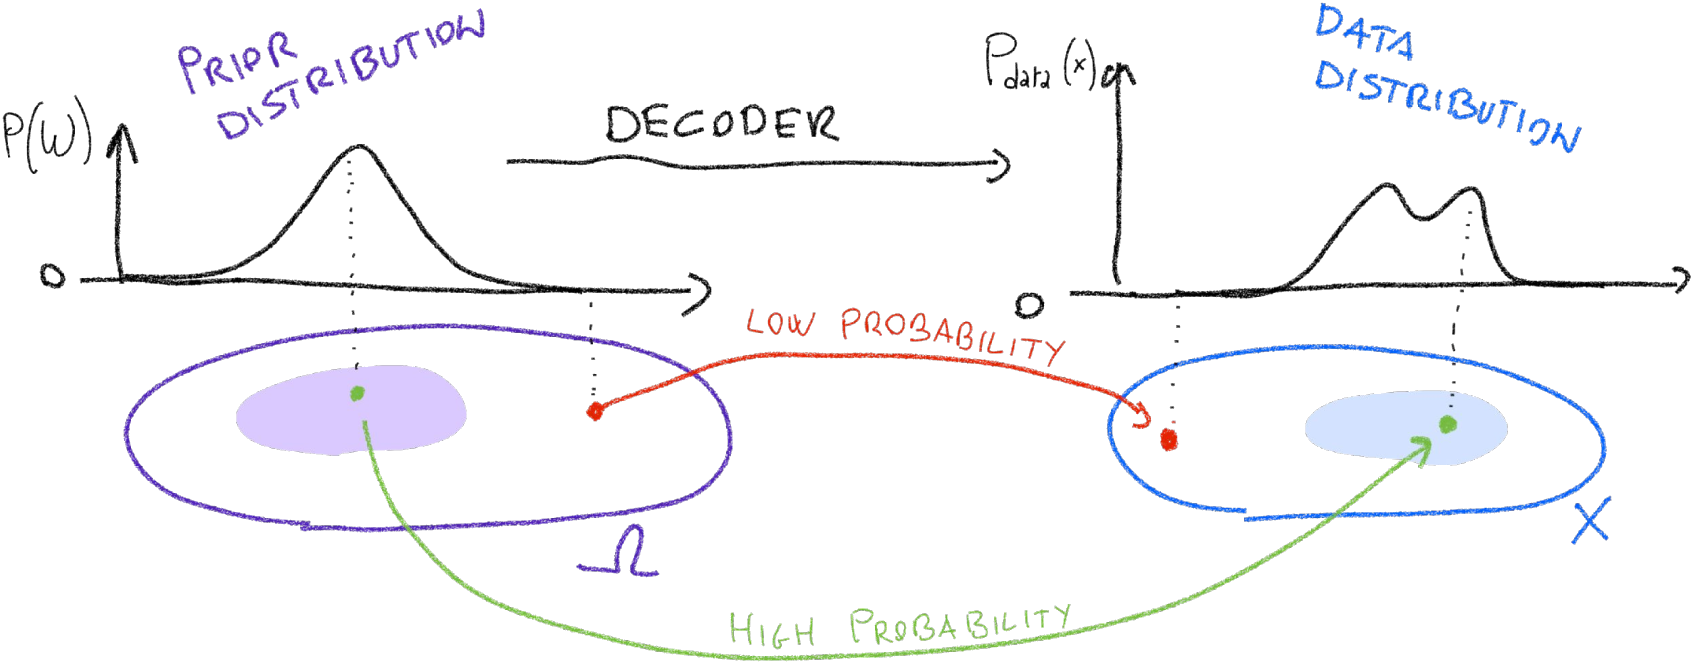 PRIOR
DISTRIBUTION
P(W)
0
DECODER
Pdata (x)
0
DATA
DISTRIBUTION
LOW PROBABILITY
Ω
X
HIGH PROBABILITY